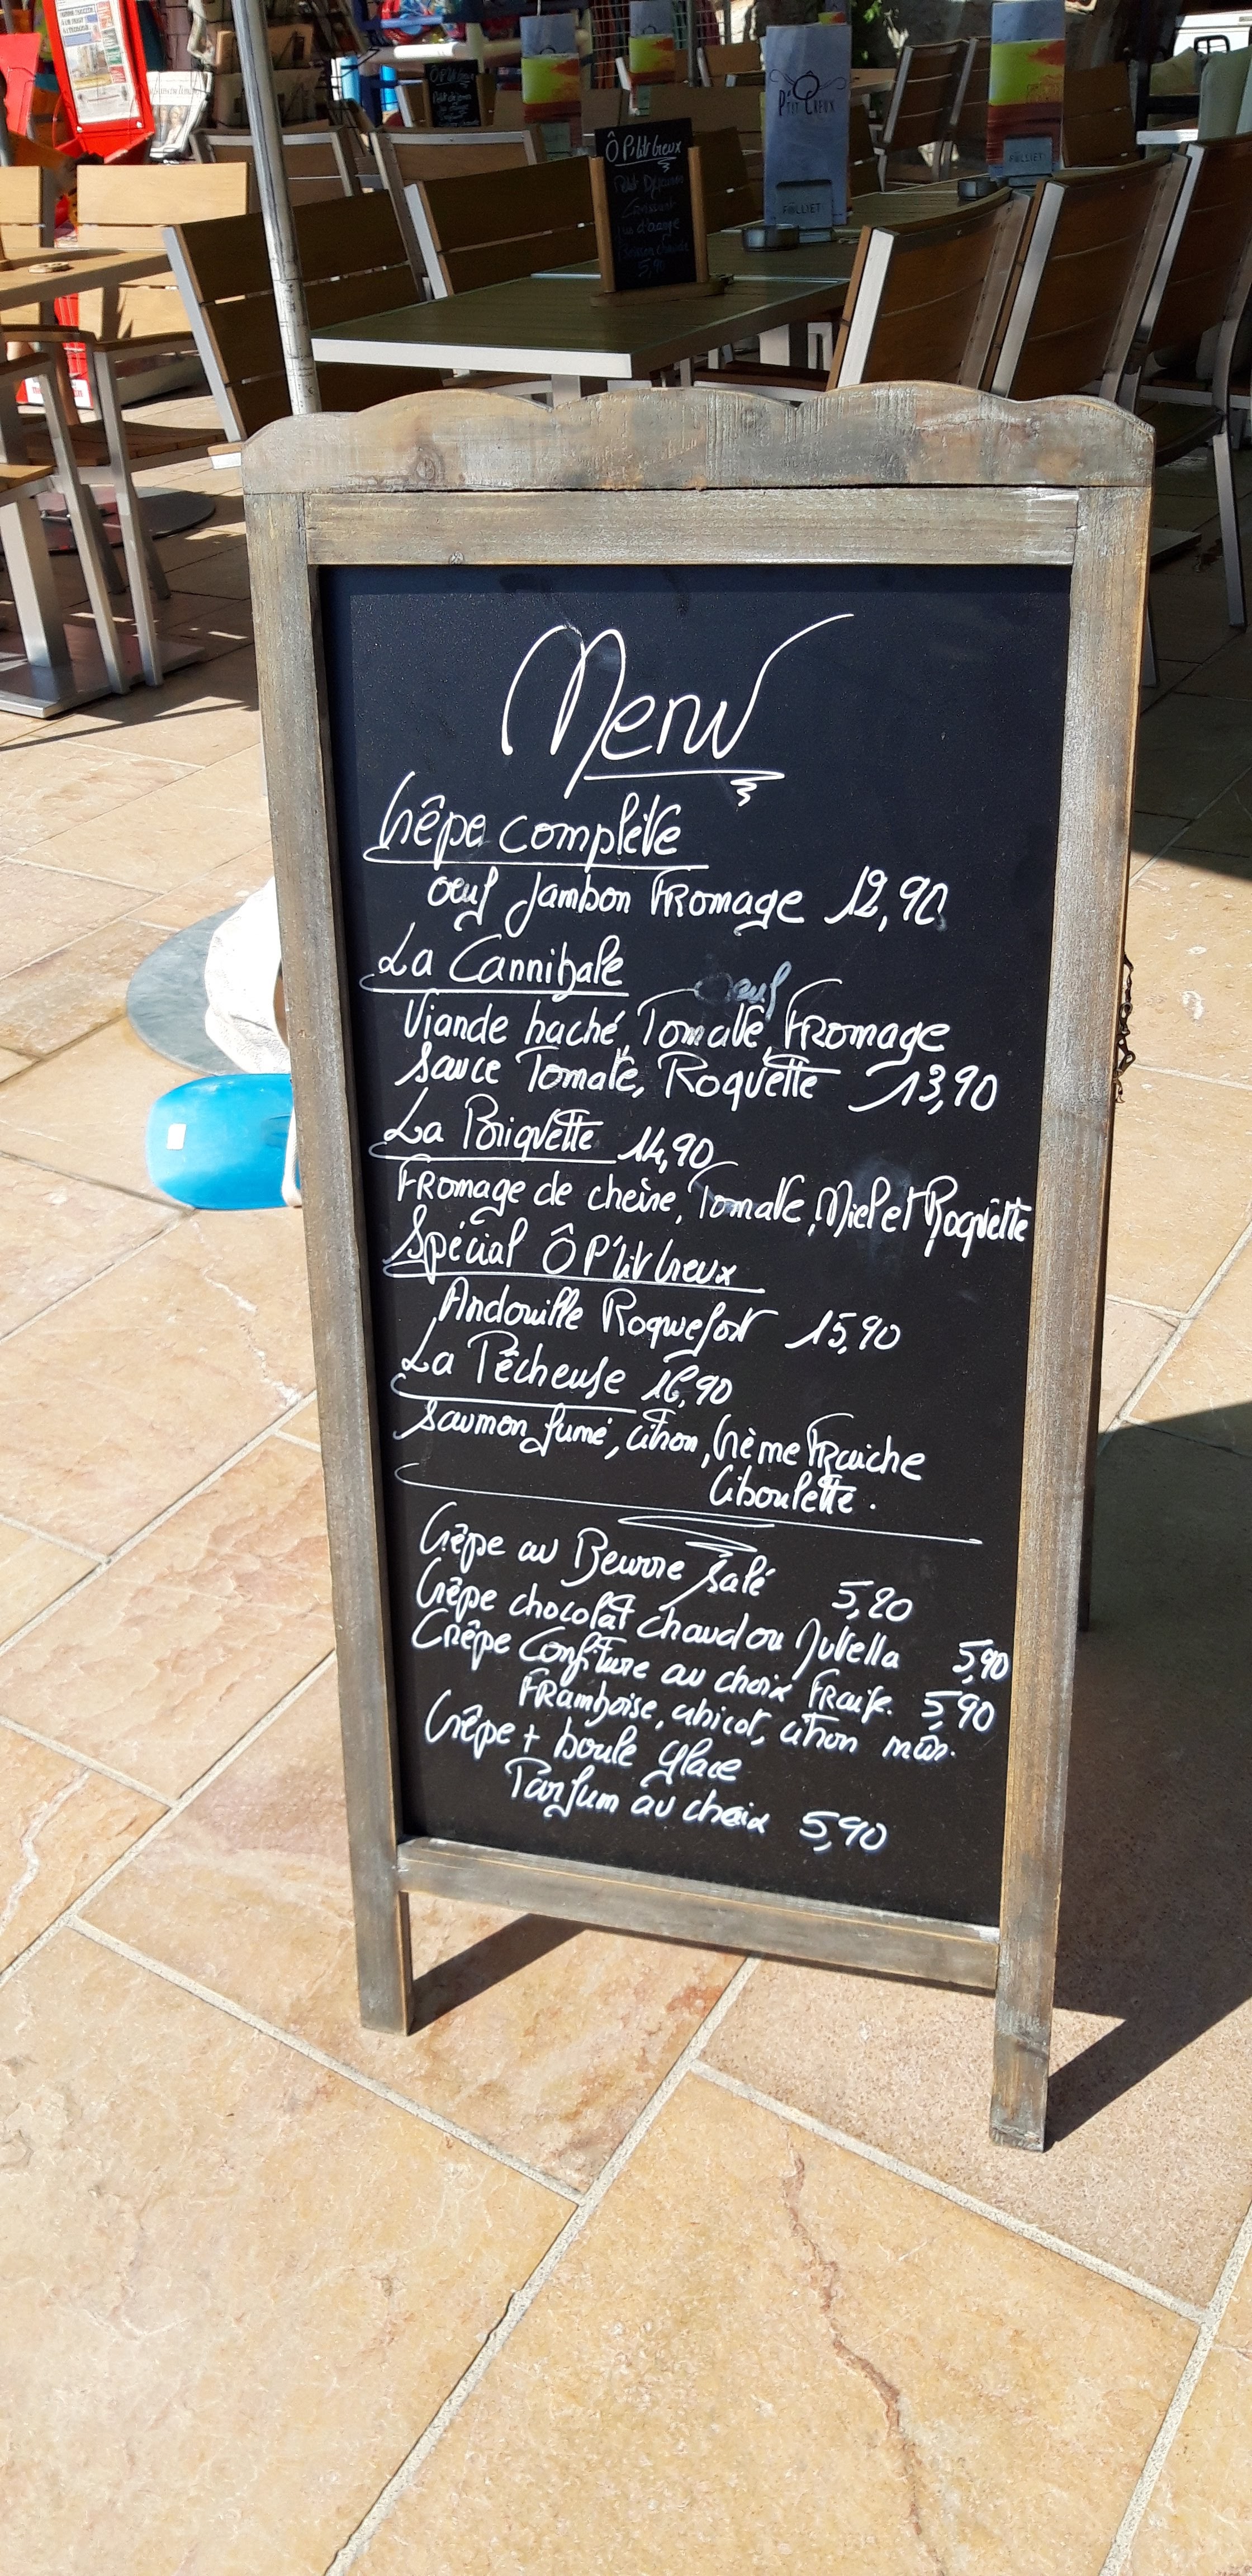 Ô P'tit Creux
Petit Déjeuner
Croissant
jus d'orange
Boisson chaude
5,90
P'TIT CREUX
FOLLIET
FOLLIET
Menu
Crêpe complète
oeuf Jambon Fromage 12,90
La Cannibale
oeuf
Viande haché, Tomate, Fromage
Sauce Tomate, Roquette 13,90
La Briquette 14,90
Fromage de chèvre, Tomate, Miel et Roquette
Spécial Ô P'tit Creux
Andouille Roquefort 15,90
La Pêcheuse 16,90
Saumon fumé, citron, Crème Fraiche
Ciboulette.
Crêpe au Beurre salé 5,20
Crêpe chocolat chaud ou Nutella 5,90
Crêpe Confiture au choix Fraise. 5,90
Framboise, abricot, citron mûr.
Crêpe + boule glace
Parfum au choix 5,90